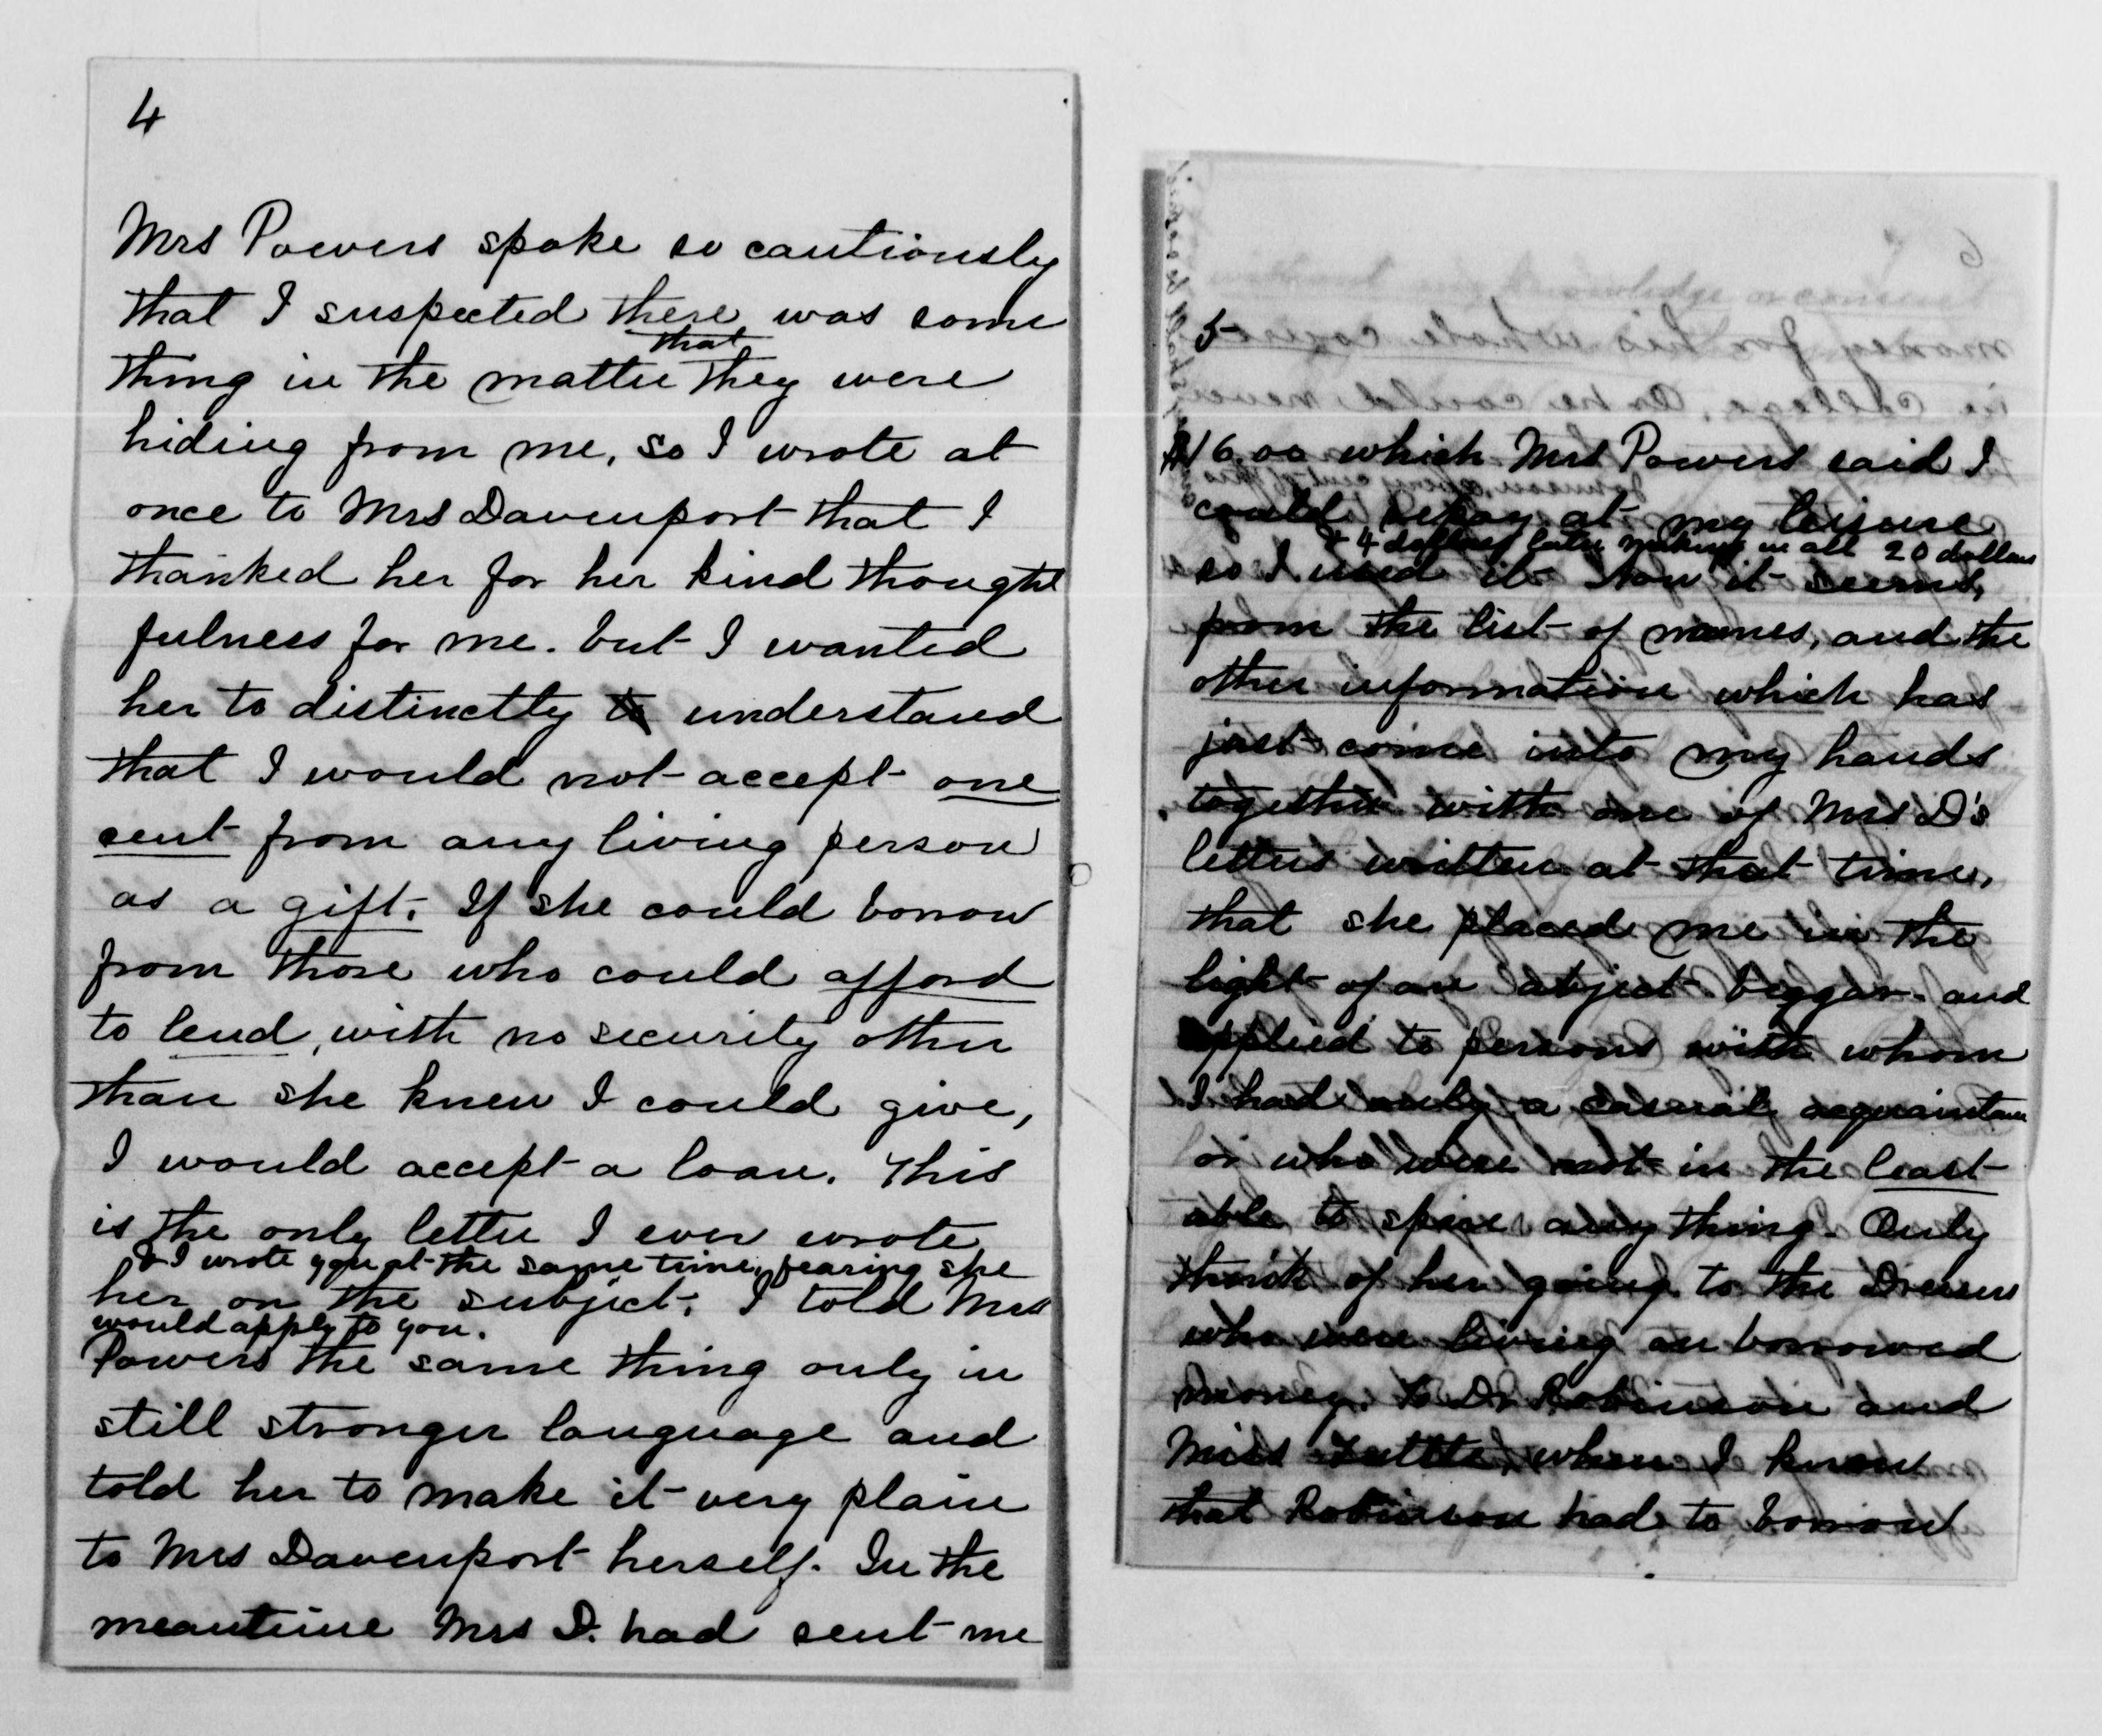 4
Mrs Powers spoke so cautiously
that I suspected there was some
that
thing in the matter they were
hiding from me, so I wrote at
once to Mrs Davenport that I
thanked her for her kind thought
fulness for me. but I wanted
her to distinctly to understand
that I would not accept one
cent from any living person
as a gift. If she could borrow
from those who could afford
to lend, with no security other
than she knew I could give,
I would accept a loan. This
is the only letter I ever wrote
& I wrote you at the same time, fearing she
her on the subject. I told Mrs
would apply to you.
Powers the same thing only in
still stronger language and
told her to make it very plain
to Mrs Davenport herself. In the
meantime Mrs D. had sent me
5
$16.00 which Mrs Powers said I
could repay at my leisure
+ 4 dollars later making in all 20 dollars
so I used it. Now it seems,
from the list of names, and the
other information which has
just come into my hands
together with one of Mrs D's
letters written at that time,
that she placed me in the
light of an abject beggar and
applied to persons with whom
I had only a casual acquaintance
or who were not in the least
able to spare any thing. Only
think of her going to the Dressers
who were living on borrowed
money. to Dr Robinson and
Miss Tuttle, when I knew
that Robinson had to borrow